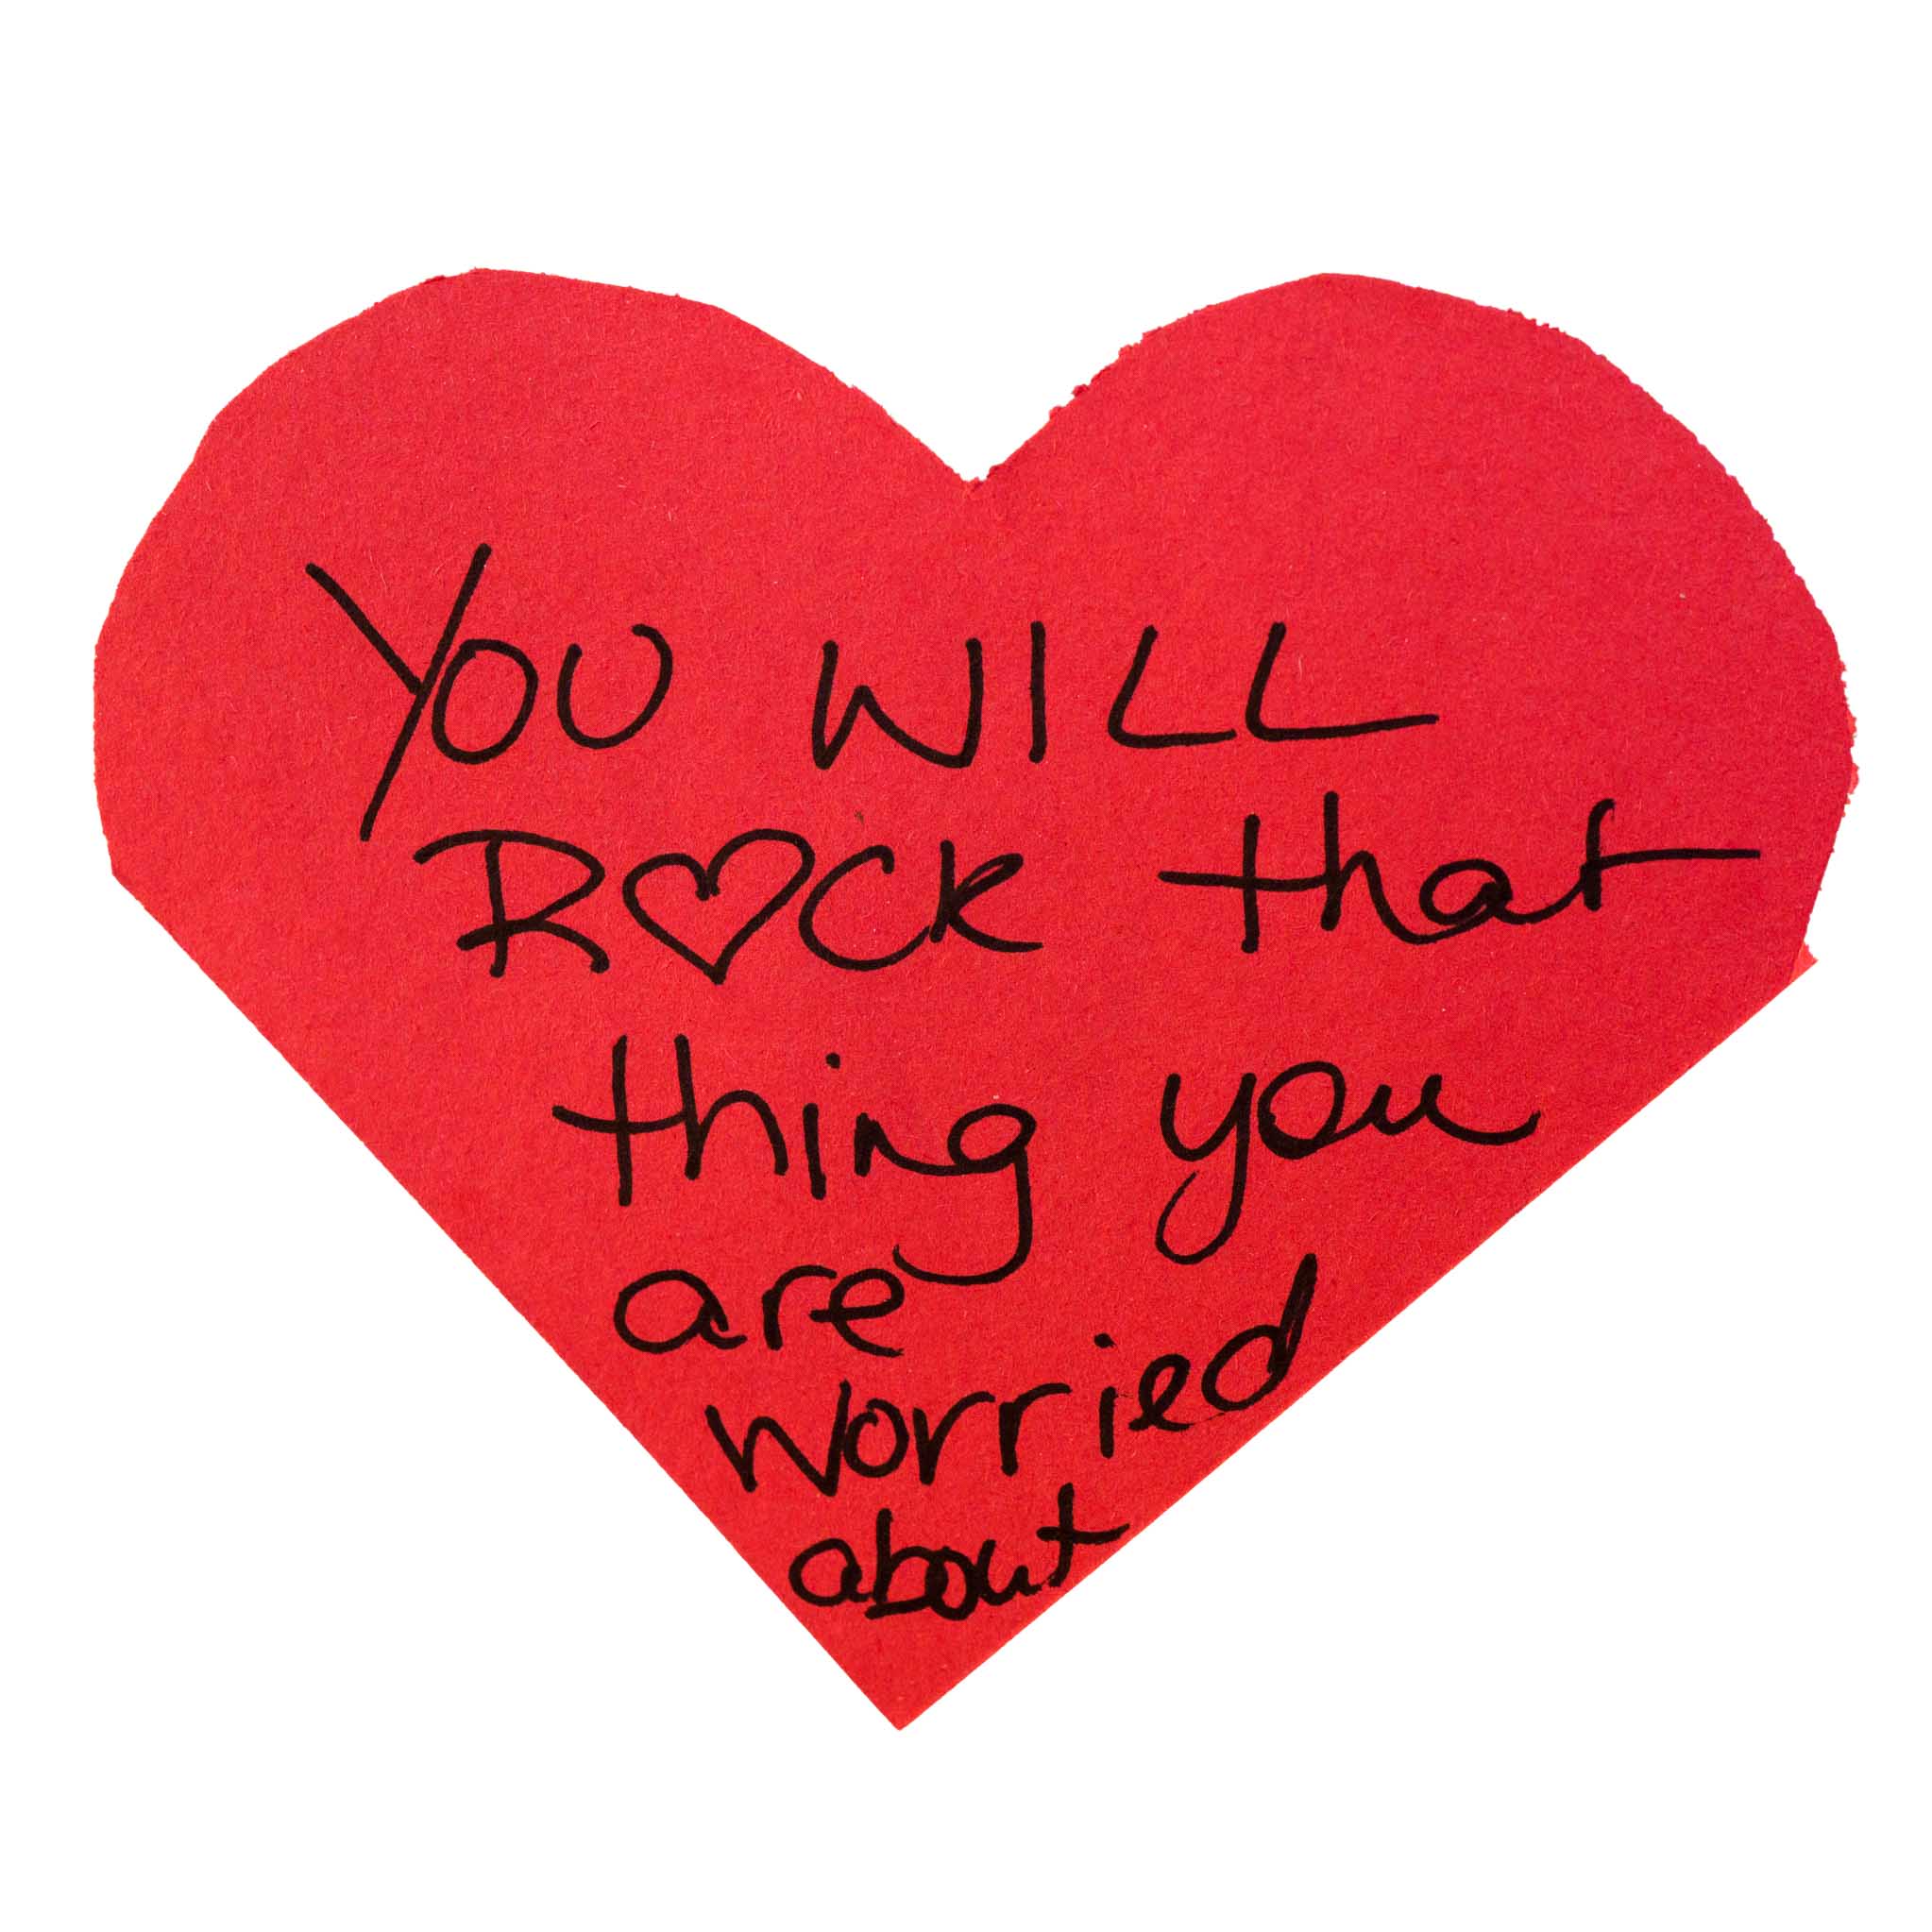 YOU WILL
R♡CK that
thing you
are
worried
about